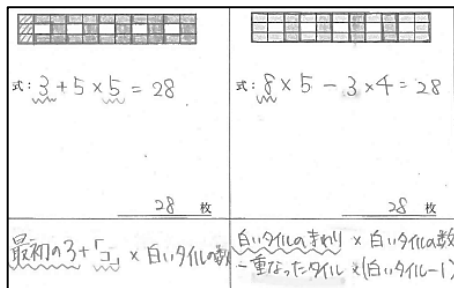 式: 3 + 5 × 5 = 28
28 枚
最初の3+「コ」× 白いタイルの数
式: 8 × 5 - 3 × 4 = 28
28 枚
白いタイルのまわり × 白いタイルの数
- 重なったタイル × (白いタイル-1)